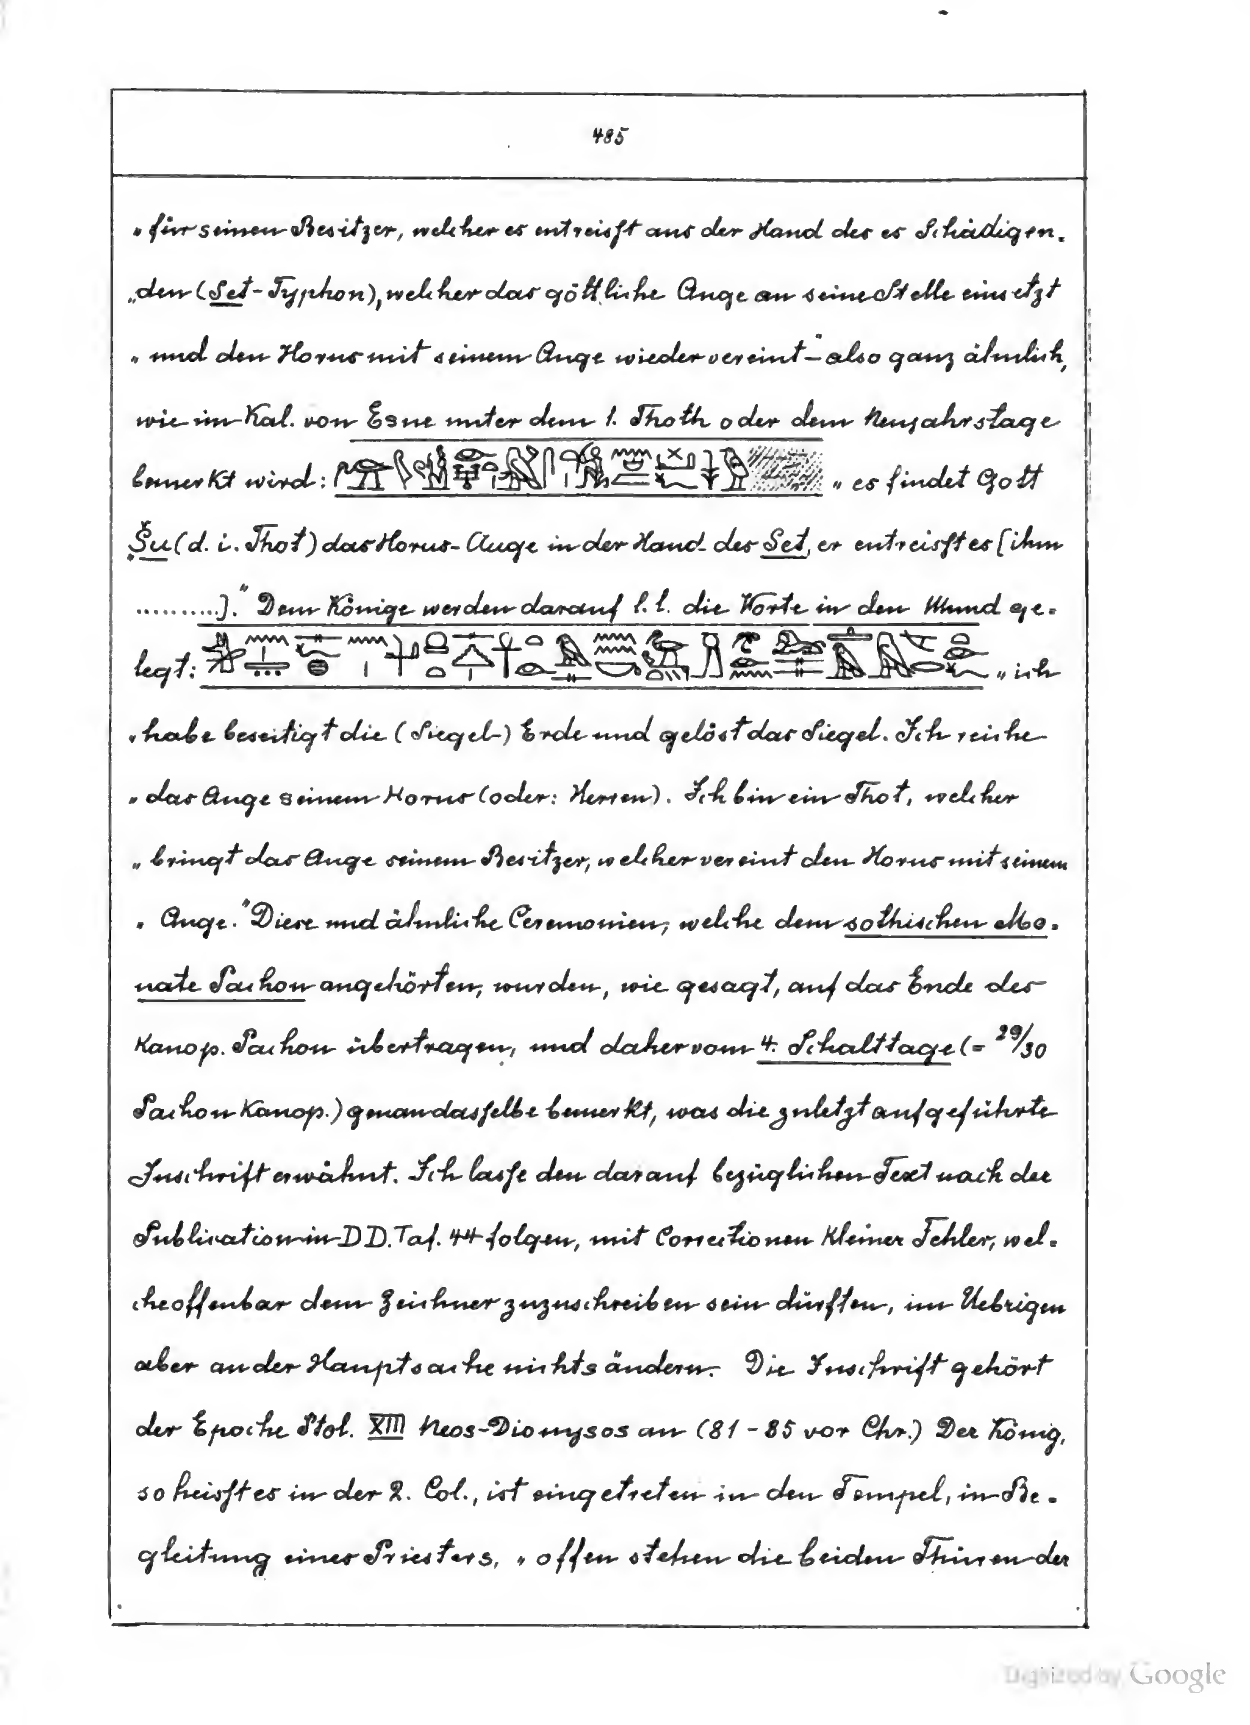 485
„ für seinen Besitzer, welcher es entreisst aus der Hand des es Schädigen-
„ den (Set-Typhon), welcher das göttliche Auge an seine Stelle einsetzt
„ und den Horus mit seinem Auge wiedervereint" – also ganz ähnlich,
wie im Kal. von Esne unter dem 1. Thoth oder dem Neujahrstage
bemerkt wird: „ es findet Gott
„ Šu (d. i. Thot) das Horus-Auge in der Hand des Set, er entreisst es [ihm
..........]." Dem Könige werden darauf l. l. die Worte in den Mund ge-
legt: „ ich
„ habe beseitigt die (Siegel-) Erde und gelöst das Siegel. Ich reiche
„ das Auge seinem Horus (oder: Herren). Ich bin ein Thot, welcher
„ bringt das Auge seinem Besitzer, welcher vereint den Horus mit seinem
„ Auge." Diese und ähnliche Ceremonien, welche dem sothischen Mo-
nate Pachon angehörten, wurden, wie gesagt, auf das Ende des
Kanop. Pachon übertragen, und daher vom 4. Schalttage (= 29/30
Pachon Kanop.) genau dasselbe bemerkt, was die zuletzt aufgeführte
Inschrift erwähnt. Ich lasse den darauf bezüglichen Text nach der
Publication in DD. Taf. 44 folgen, mit Correctionen kleiner Fehler, wel-
che offenbar dem Zeichner zuzuschreiben sein dürften, im Uebrigen
aber an der Hauptsache nichts ändern. Die Inschrift gehört
der Epoche Ptol. XIII Neos-Dionysos an (81-85 vor Chr.) Der König,
so heisst es in der 2. Col., ist eingetreten in den Tempel, in Be-
gleitung eines Priesters, „ offen stehen die beiden Thüren der
Digitized by Google